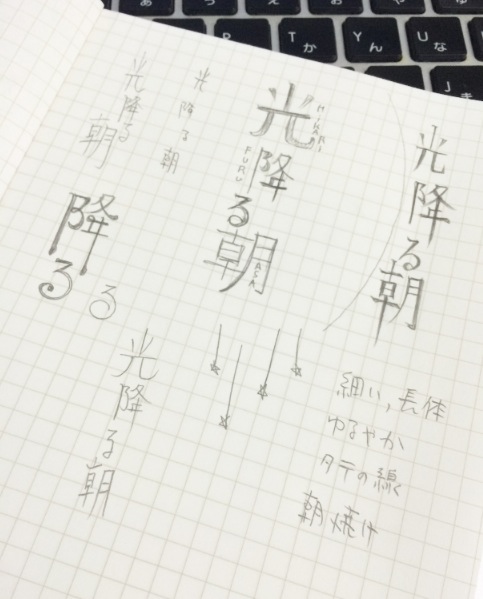 R
T か
Y ん
U な
J ま
光降る朝
光降る朝
光降る朝
HIKARI
FURU
ASA
光降る朝
降る
る
光降る朝
細い,長体
ゆるやか
タテの線く
朝焼け